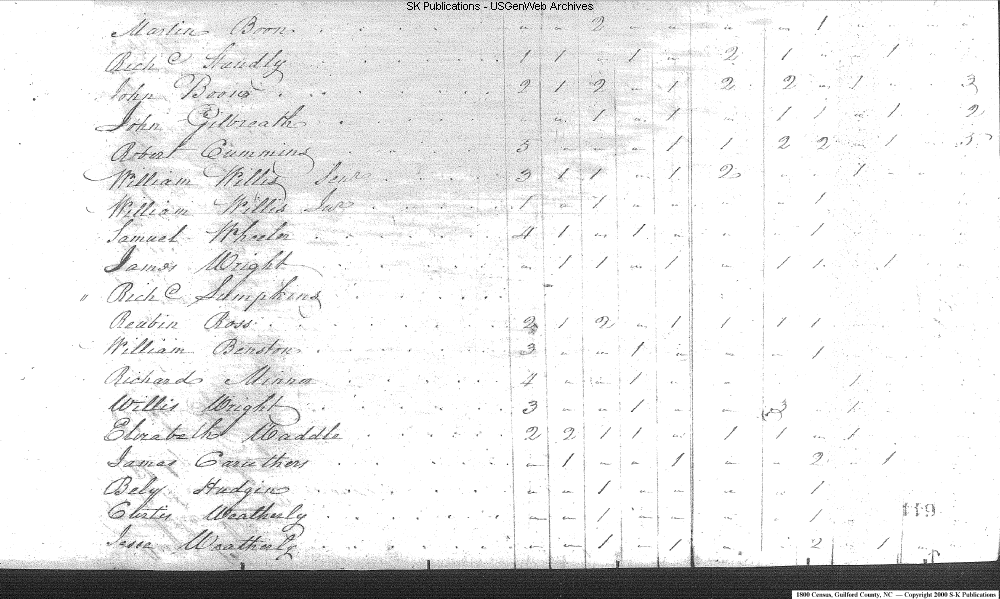 SK Publications - USGenWeb Archives
Martin Boon - - 2 - - - - 1
Richd Handly 1 1 - 1 - 2 1 - - 1
John Boon 2 1 2 - 1 2 2 - 1 - - 3
John Gilbreath - - 1 - 1 - 1 1 - 1 - 2
Robert Cummins 5 - - - 1 1 2 2 - 1 - 5
William Willis Senr 3 1 1 - 1 2 - - 1
William Willis Junr 1 - 1 - - - - 1
Samuel Wheeler 4 1 - 1 - - - 1
James Wright - 1 1 - 1 - 1 1 - 1
" Richd Lumpkins
Reubin Ross 2 1 2 - 1 1 1 1
William Benston 3 - - 1 - - - 1
Richard Minnor 4 - - 1 - - - - 1
Willis Wright 3 - - 1 - - 3 - 1
Elizabeth Waddle 2 2 1 1 - 1 1 - 1
James Caruthers - 1 - - 1 - - 2 - 1
Bely Hudgin - - 1 - - - - 1
Curtis Weatherly - - 1 - - - - 1
Jesse Weatherly - - 1 - 1 - - 2 - 1
119
1800 Census, Guilford County, NC — Copyright 2000 S-K Publications